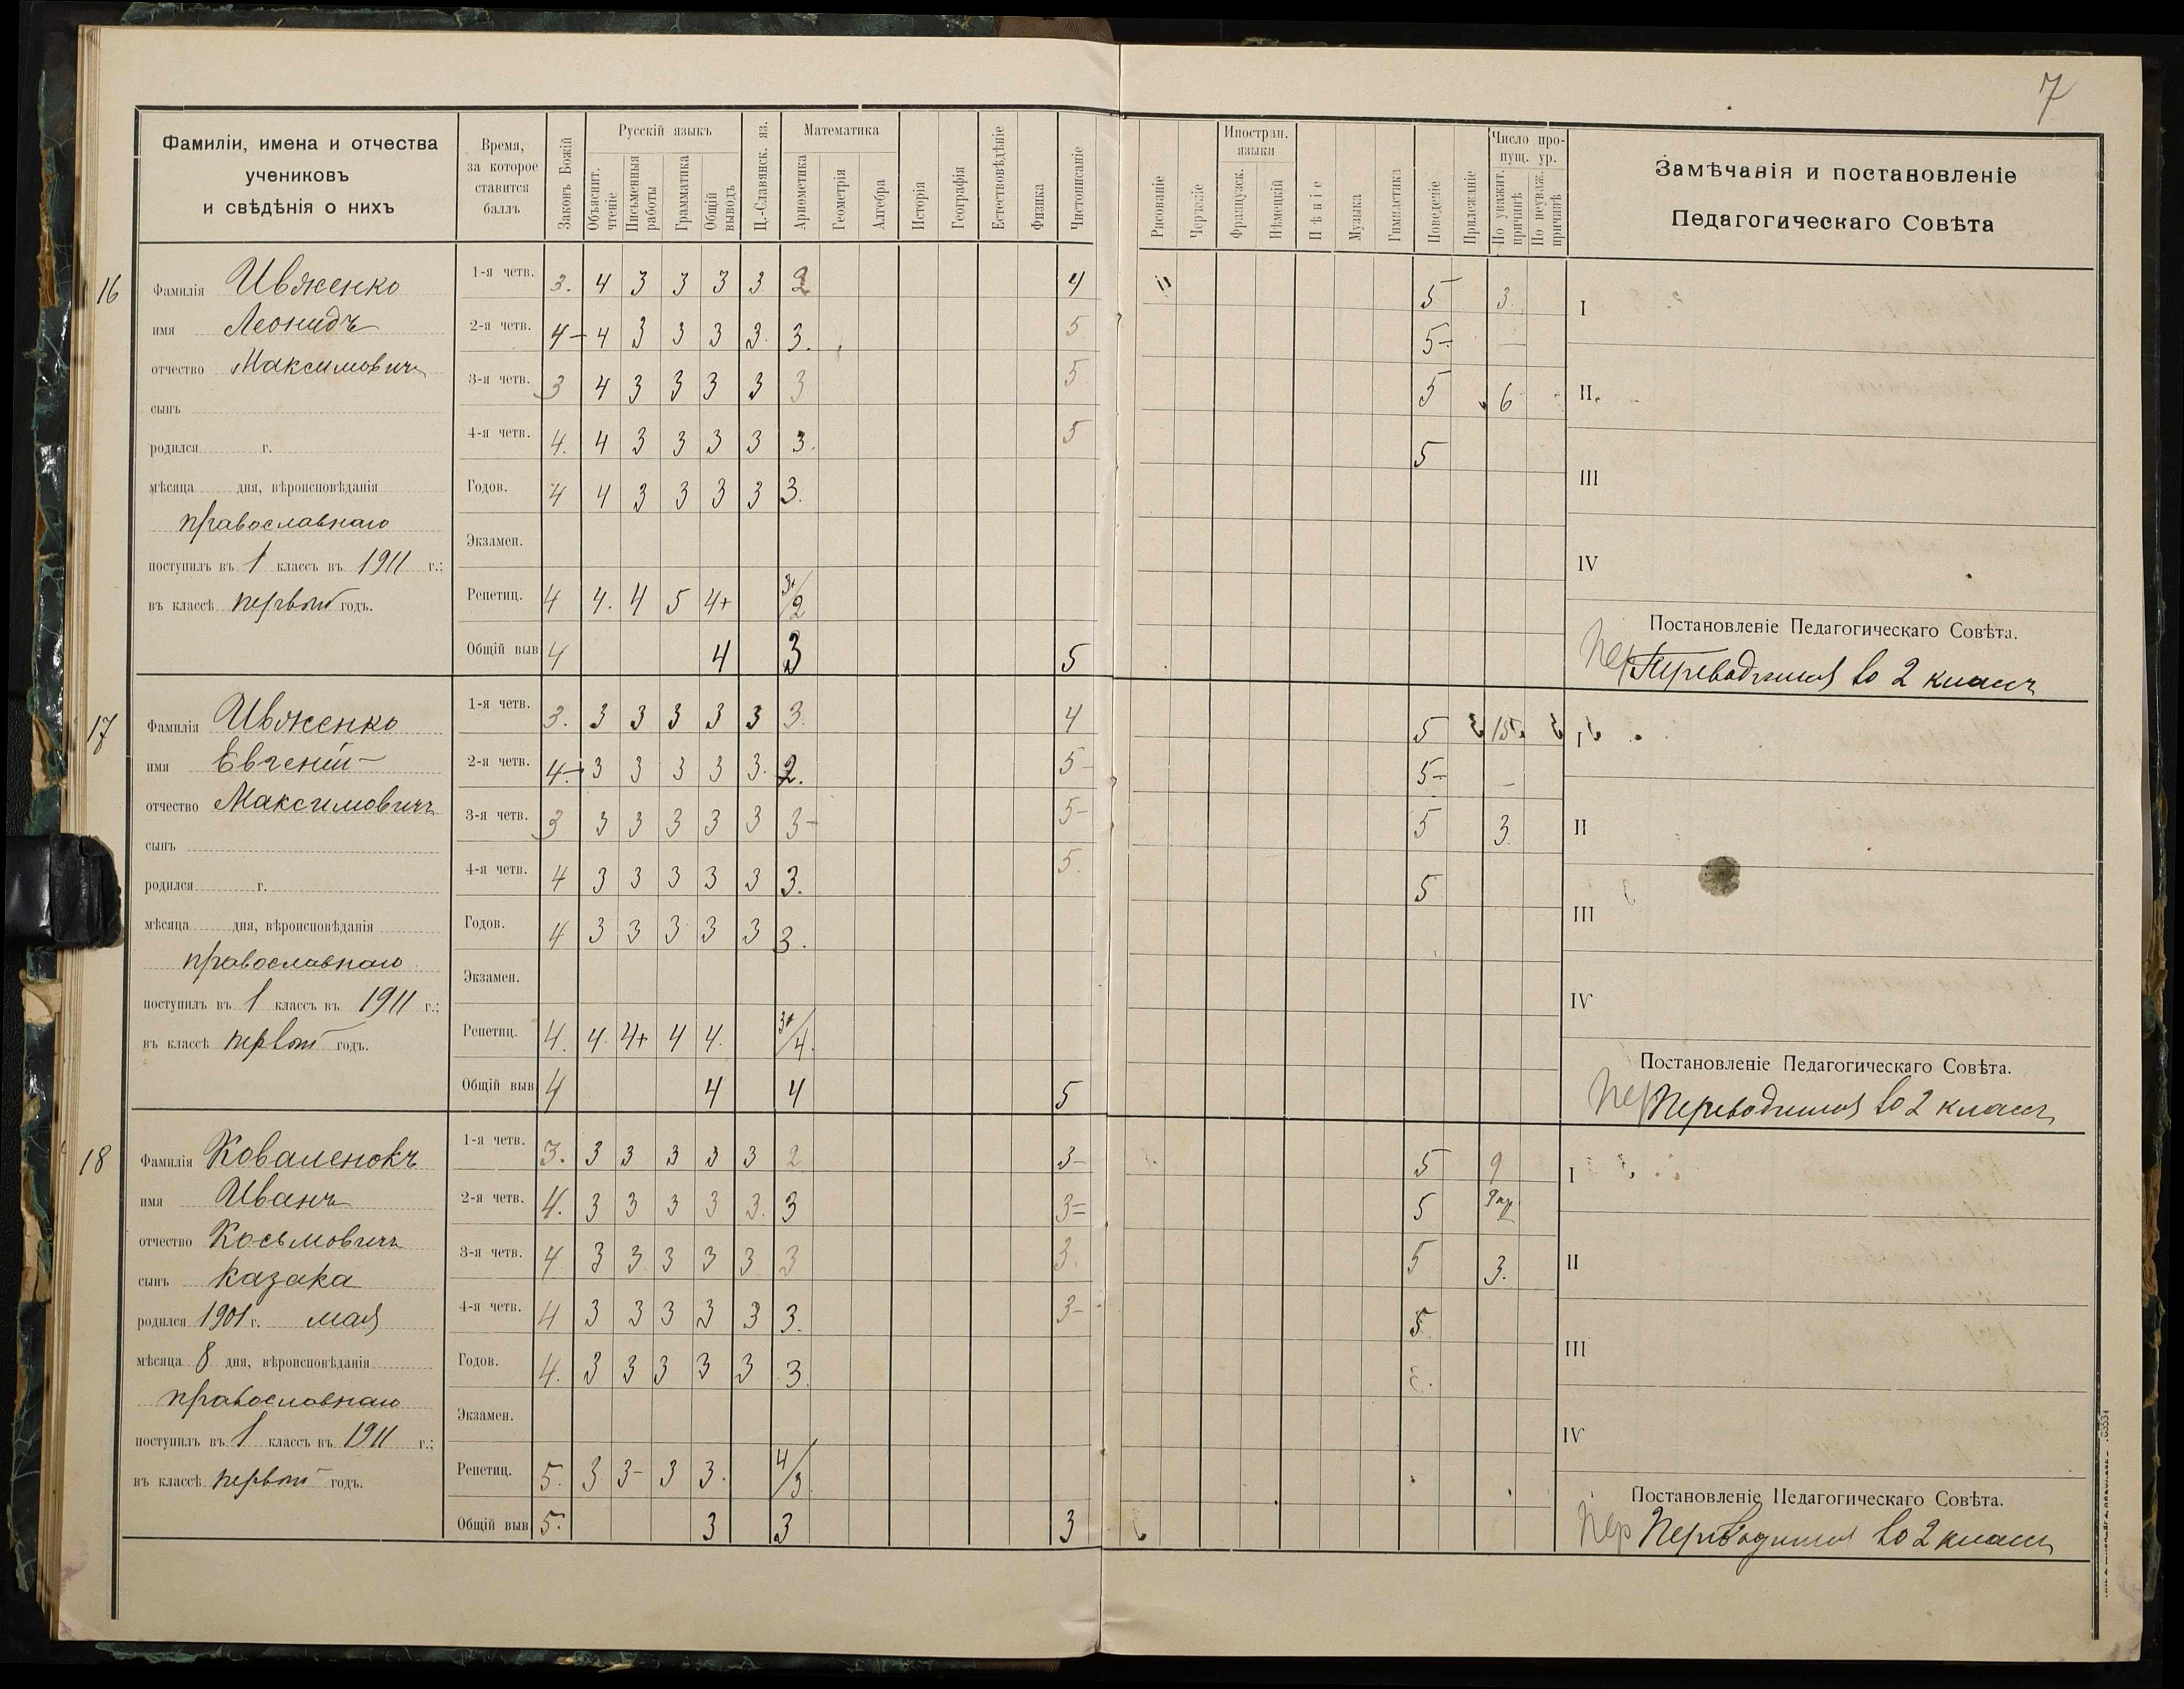 7
Фамиліи, имена и отчества
учениковъ
и свѣдѣнія о нихъ
Время,
за которое
ставится
баллъ
Законъ Божій
Русскій языкъ
Объяснит. чтеніе
Письменныя работы
Грамматика
Общій выводъ
Ц.-Славянск. яз.
Математика
Ариѳметика
Геометрія
Алгебра
Исторія
Географія
Естествовѣдѣніе
Физика
Чистописаніе
Рисованіе
Черченіе
Иностран. языки
Французск.
Нѣмецкій
Пѣніе
Музыка
Гимнастика
Поведеніе
Прилежаніе
Число пропущ. ур.
По уважит. причинѣ
По неуваж. причинѣ
Замѣчанія и постановленіе
Педагогическаго Совѣта
16
Фамилія Ивженко
имя Леонидъ
отчество Максимовичъ
сынъ
родился г.
мѣсяца дня, вѣроисповѣданія
православнаго
поступилъ въ 1 классъ въ 1911 г.;
въ классѣ первый годъ.
1-я четв. 3. 4 3 3 3 3. 2 4 5 3.
2-я четв. 4- 4 3 3 3 3. 3. 5 5- —
3-я четв. 3 4 3 3 3 3 3 5 5 6
4-я четв. 4. 4 3 3 3 3 3. 5 5
Годов. 4 4 3 3 3 3 3.
Экзамен.
Репетиц. 4 4. 4 5 4+ 3+/2
Общій выв 4 4 3 5
I
II
III
IV
Постановленіе Педагогическаго Совѣта.
Пер Переводится во 2 классъ
17
Фамилія Ивженко
имя Евгеній
отчество Максимовичъ
сынъ
родился г.
мѣсяца дня, вѣроисповѣданія
православнаго
поступилъ въ 1 классъ въ 1911 г.;
въ классѣ первый годъ.
1-я четв. 3. 3 3 3 3 3 3. 4 5 15.
2-я четв. 4- 3 3 3 3 3. 2. 5- 5- —
3-я четв. 3 3 3 3 3 3 3- 5- 5 3.
4-я четв. 4 3 3 3 3 3 3. 5. 5
Годов. 4 3 3 3 3 3 3.
Экзамен.
Репетиц. 4. 4. 4+ 4 4. 3+/4.
Общій выв 4 4 4 5
I
II
III
IV
Постановленіе Педагогическаго Совѣта.
Пер Переводится во 2 классъ
18
Фамилія Коваленокъ
имя Иванъ
отчество Косьмовичъ
сынъ казака
родился 1901 г. мая
мѣсяца 8 дня, вѣроисповѣданія
православнаго
поступилъ въ 1 классъ въ 1911 г.;
въ классѣ первый годъ.
1-я четв. 3. 3 3 3 3 3 2 3- 5 9
2-я четв. 4. 3 3 3 3 3. 3 3= 5
3-я четв. 4 3 3 3 3 3 3 3. 5 3.
4-я четв. 4 3 3 3 3 3 3. 3- 5.
Годов. 4. 3 3 3 3 3 3.
Экзамен.
Репетиц. 5. 3 3- 3 3. 4/3.
Общій выв 5. 3 3 3
I
II
III
IV
Постановленіе Педагогическаго Совѣта.
Пер Переводится во 2 классъ